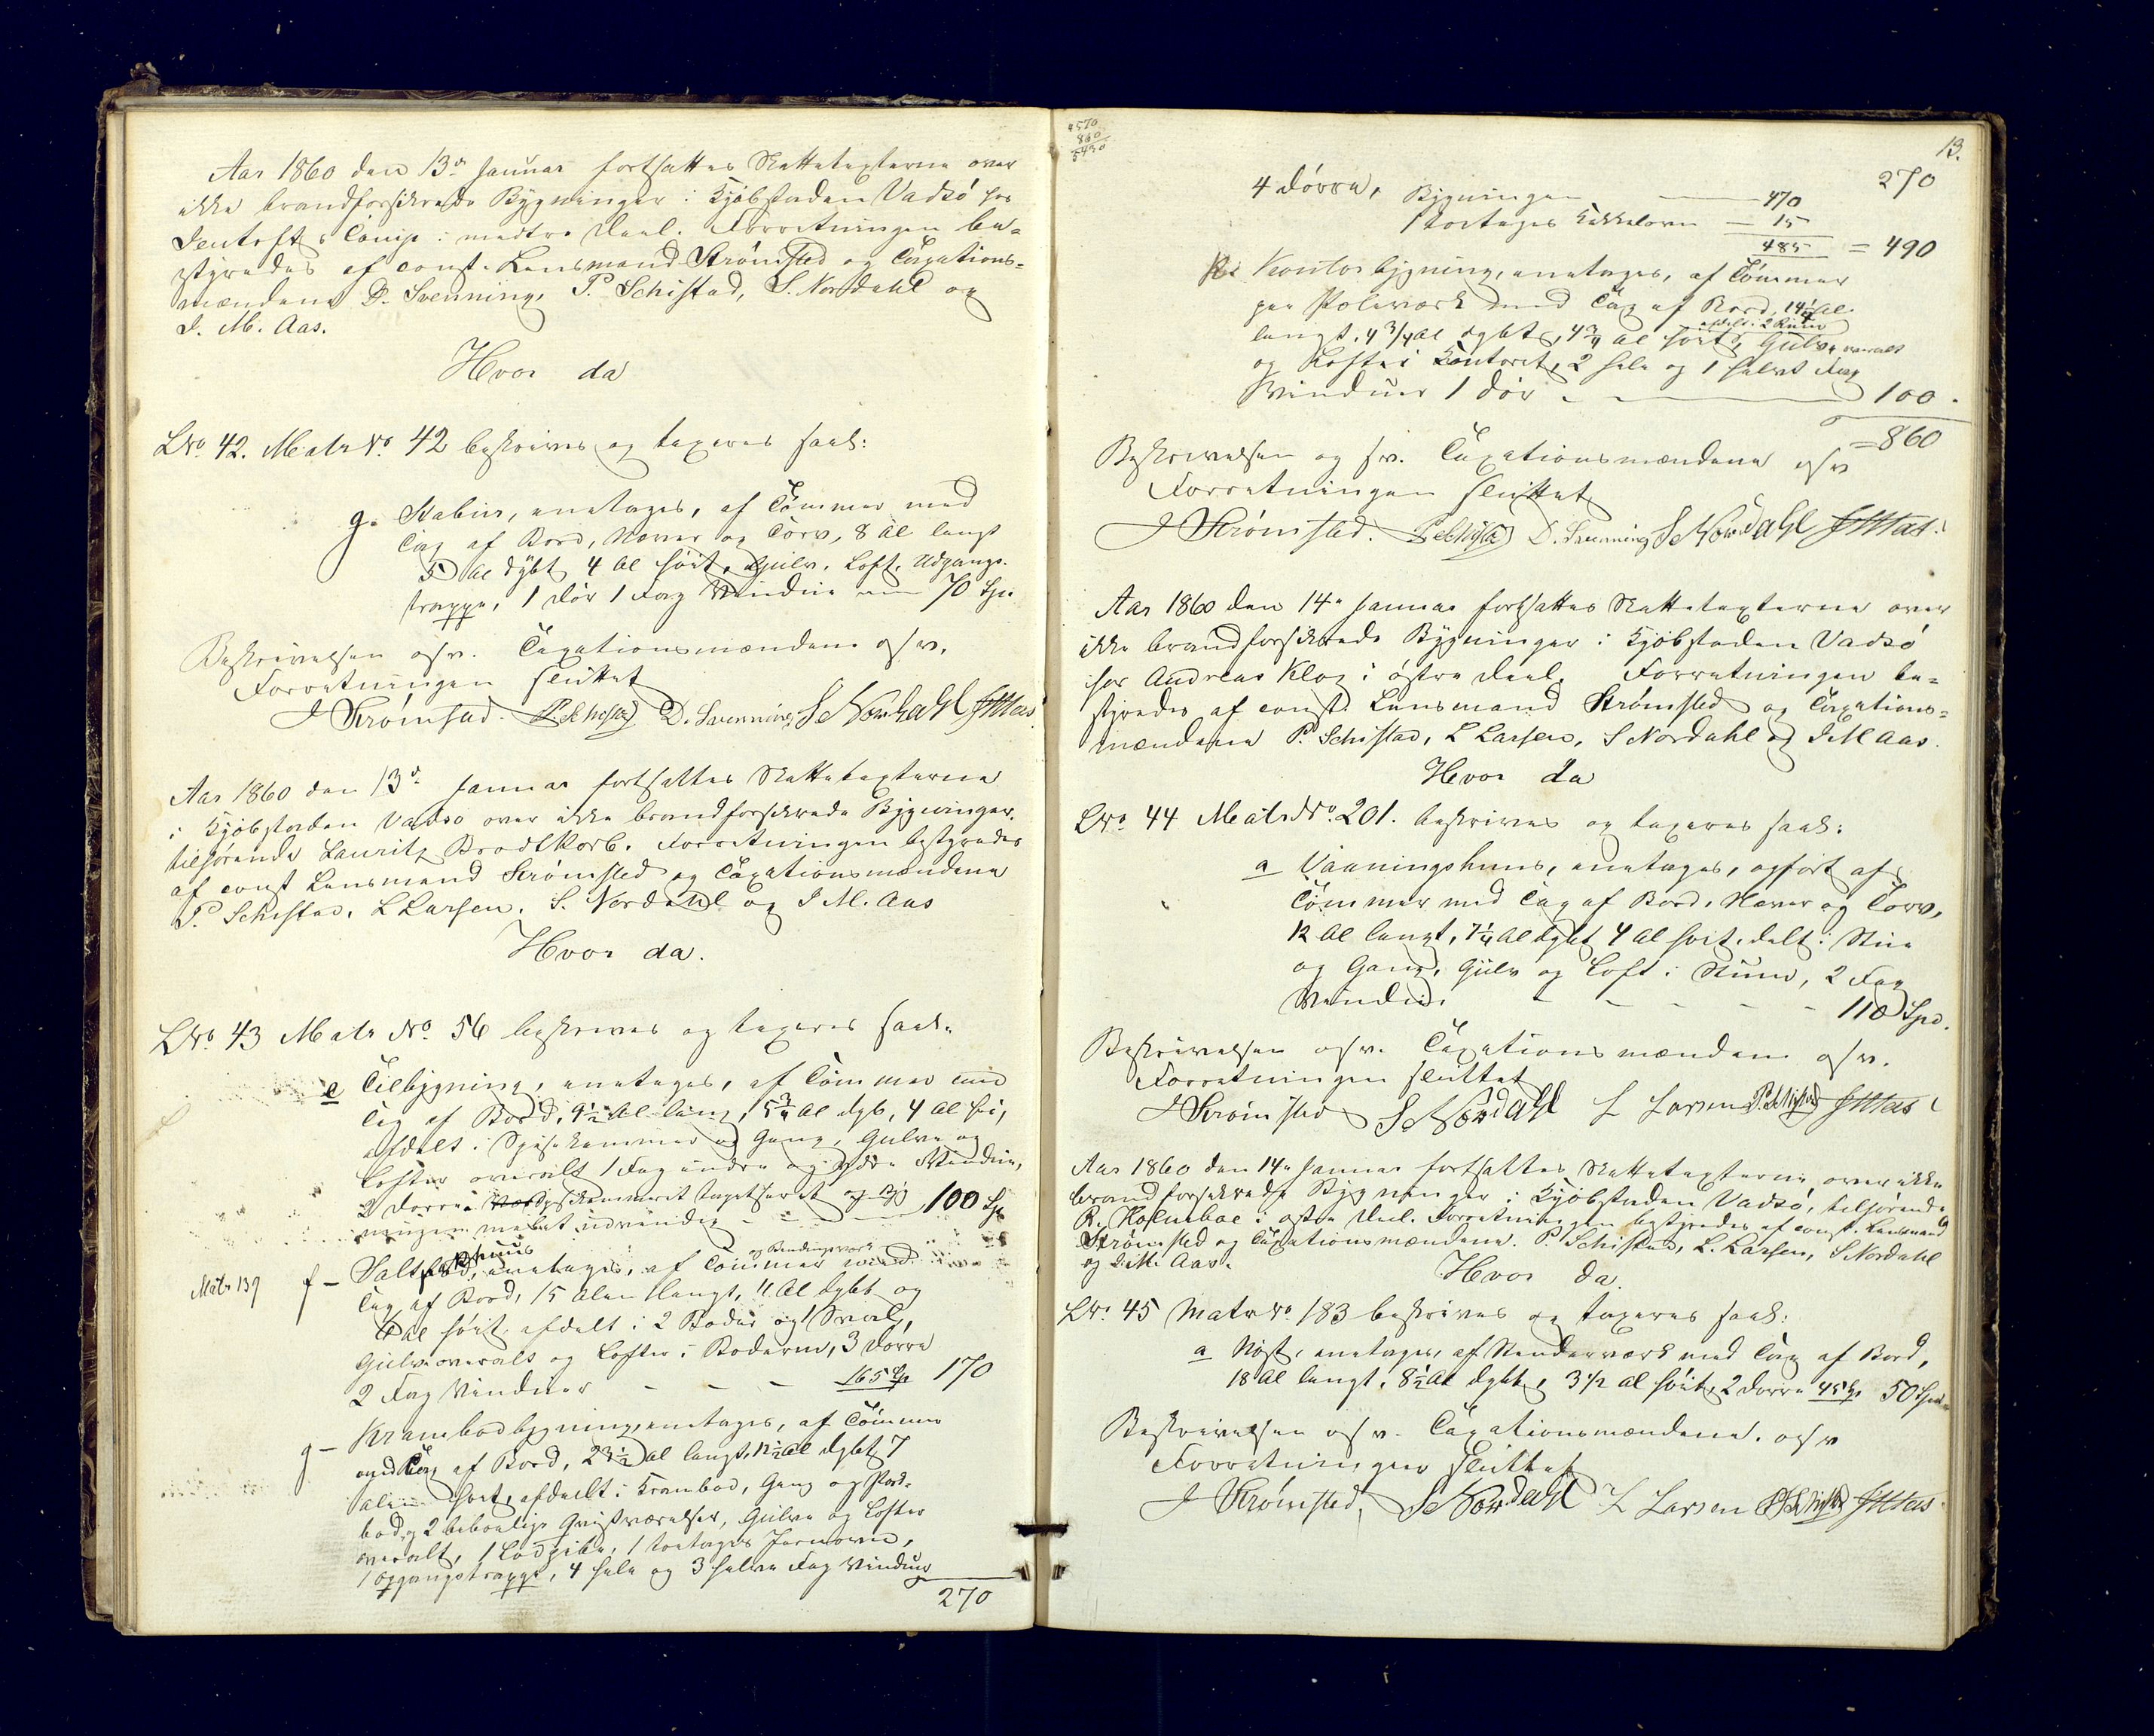 Aar 1860 den 13de Januar fortsattes Skattetaxterne over
ikke brandforsikrede Bygninger i Kjøbstaden Vadsø hos
Comp. i nedtre Deel. Forretningen be-
styredes af const. Lensmand Strømsted og Taxations-
mændene D. Svenning, P. Schistad, S. Nordahl og
I. M. Aas.
Hvor da
LNo 42. Matr No. 42 beskrives og taxeres saal:
g. Stabur, eenetages, af Tømmer med
Tag af Bord, Næver og Torv, 8 Al langt
5 Al dybt 4 Al høit, Gulv, Loft, Udgangs-
trappe, 1 Dør 1 Fag Vindue 70 Spd
Beskrivelsen osv. Taxationsmændene osv.
Forretningen sluttet
J Strømsted. P. Schistad D. Svenning S Nordahl I M Aas
Aar 1860 den 13de Januar fortsattes Skattetaxterne
i Kjøbstaden Vadsø over ikke brandforsikrede Bygninger,
tilhørende Lauritz Brodtkorb. Forretningen bestyredes
af const Lensmand Strømsted og Taxationsmændene
P. Schistad, L Larsen, S. Nordahl og I M. Aas
Hvor da.
LNo. 43 Matr No. 56 beskrives og taxeres saal.
e Tilbygning, eenetages, af Tømmer med
Tag af Bord, 9 1/2 Al lang, 5 3/4 Al dyb, 4 Al høi,
afdelt i Spisekammer og Gang, Gulve og
Lofter overalt 1 Fag indre og ydre Vindue,
2 Dørre tapetseret og Byg
ningen malet udvendig - - 100 Spd
Matr 139 f - Salt huus eenetages, af Tømmer og Bindingsværk med
Tag af Bord, 15 Alen langt, 11 Al dybt og
Al høit, afdelt i 2 Boder og 1 Sval,
Gulv overalt og Lofter i Boderne, 3 Dørre
2 Fag Vinduer - - - 165 Sp 170
g - Krambodbygning, eenetages, af Tømmer
med Tag af Bord, 23 1/2 Al langt, 12 1/2 Al dybt 7
alen høit, afdeelt i Krambod, Gang og
bod, og 2 beboelige Qvistværelser, Gulve og Lofter
overalt, 1 , 1 toetages Jernovn,
1 Opgangstrappe, 4 hele og 3 halve Fag Vinduer
270
4570
860
5430
13.
4 Dørre, 270
Bygningen 470
1 toetages Kakkelovn = 15
485 = 490
Kontorbygning, eenetages, af Tømmer
paa Poleværk med Tag af Bord, 14 1/4 Al.
langt, 4 3/4 Al dybt, 4 3/4 Al høit, afdelt i 2 Rum Gulv overalt
og Loft i Kontoret, 2 hele og 1 halvt Fag
Vinduer 1 Dør - - 100.
= 860
Beskrivelsen osv. Taxationsmændene osv
Forretningen sluttet
J Strømsted. P Schistad D. Svenning S Nordahl I M Aas
Aar 1860 den 14e Januar fortsattes Skattetaxterne over
ikke brandforsikrede Bygninger i Kjøbstaden Vadsø
hos Andreas Kloz i østre Deel. Forretningen be-
styredes af const. Lensmand Strømsted og Taxations-
mændene P. Schistad, L Larsen, S Nordahl og I M Aas.
Hvor da
LNo. 44 Matr No. 201. beskrives og taxeres saal:
a Vaaningshuus, eenetages, opført af
Tømmer med Tag af Bord, Næver og Torv,
12 Al langt, 7 1/4 Al dybt 4 Al høit, delt i Stue
og Gang, Gulv og Loft i Stuen, 2 Fag
Vinduer - - - - - 110 Spd.
Beskrivelsen osv. Taxationsmændene osv.
Forretningen sluttet
J Strømsted S Nordahl L Larsen P. Schistad I M Aas
Aar 1860 den 14e Januar fortsattes Skattetaxterne over ikke
brandforsikrede Bygninger i Kjøbstaden Vadsø, tilhørende
R. Holmboe i østre Deel. Forretningen bestyredes af const. Lensmand
Strømsted og Taxationsmændene P. Schistad, L. Larsen, S Nordahl
og I. M. Aas.
Hvor da
LNo 45 Matr No. 183 beskrives og taxeres saal:
a Nøst, eenetages, af Stenderværk med Tag af Bord,
18 Al langt, 8 1/2 Al dybt, 3 1/2 Al høit, 2 Dørre 45 Sp 50 Spd
Beskrivelsen osv. Taxationsmændene. osv
Forretningen sluttet
J Strømsted, S Nordahl L Larsen P Schistad I M Aas